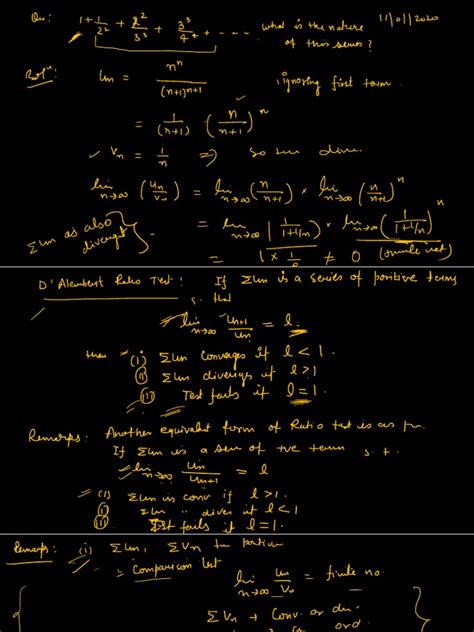 Qu: 1 + 1/2² + 2²/3³ + 3³/4⁴ + ---- what is the nature of this series? 11/01/2020
Sol^n: Un = n^n/(n+1)^(n+1) ignoring first term
= 1/(n+1) · (n/(n+1))^n
Vn = 1/n ⇒ 
lim n→∞ (Un/Vn) = lim n→∞ (n/(n+1)) × lim n→∞ (n/(n+1))^n
= lim n→∞ (1/(1+1/n)) × lim n→∞ (1/(1+1/n))^n
ΣUn as also diverges
= 1 × 1/e ≠ 0
D'Alembert Ratio Test: If ΣUn is a series of positive terms
s. that
lim n→∞ Un+1/Un = l.
then (i) ΣUn converges if l < 1.
(ii) ΣUn diverges if l > 1
(iii) Test fails if l = 1.
Remarks: Another equivalent form of Ratio test is as
If ΣUn is a series of +ve terms s.t.
lim n→∞ Un/Un+1 = l
(i) ΣUn is conv if l > 1.
(ii) ΣUn " diver if l < 1
(iii) Test fails if l = 1.
Remarks: (i) ΣUn, ΣVn
Comparison test
lim n→∞ Un/Vn = finite no.
ΣVn → Conv. or div.